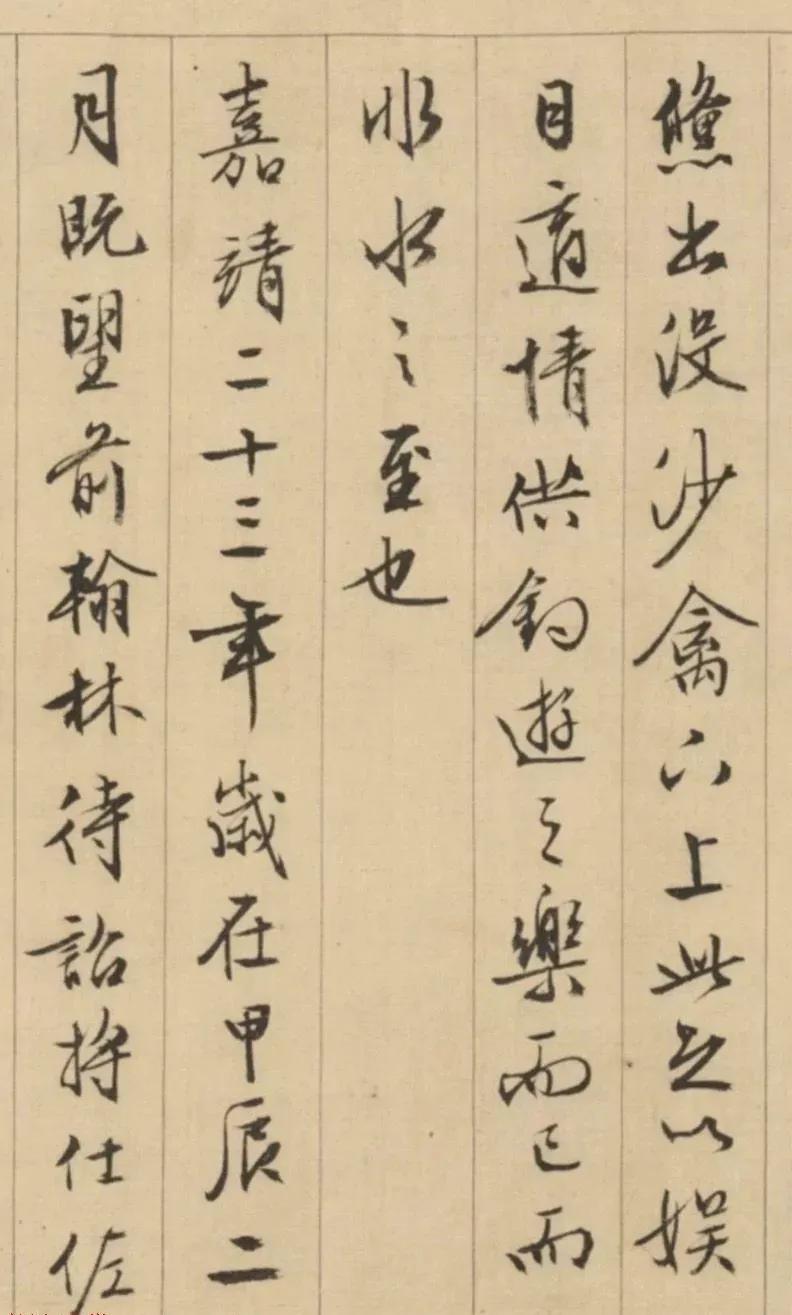 儵出没沙禽下上此足以娱
目適情供釣遊之樂而已而
非水之至也
嘉靖二十三年歲在甲辰二
月既望前翰林待詔將仕佐